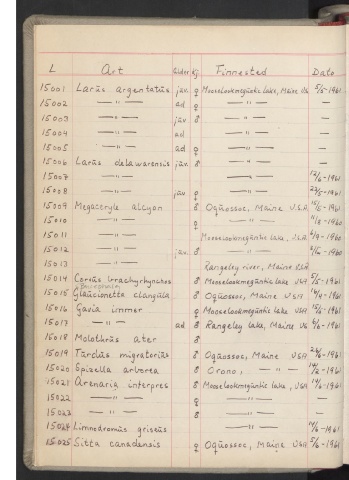 L Art Ålder Kj. Finnested Dato
15001 Larus argentatus juv. ♀ Mooselookmeguntic lake, Maine USA 5/5-1961
15002 —"— ad ♀ —"— —
15003 —"— juv. ♂ —"— —
15004 —"— ad —"— —
15005 —"— ad ♀ —"— —
15006 Larus delawarensis juv. ♂ —"— —
15007 —"— —"— 12/6-1961
15008 —"— juv ♀ —"— 23/5-1961
15009 Megaceryle alcyon ♂ Oquossoc, Maine U.S.A 15/5-1961
15010 —"— ♀ —"— 11/8-1960
15011 —"— Mooselookmeguntic lake, U.S.A 6/9-1960
15012 —"— juv. ♂ —"— -1960
15013 —"— Rangeley river, Maine USA
15014 Corvus brachyrhynchos ♂ Mooselookmeguntic lake USA 5/5-1961
15015 Glaucionetta clangula ♂ Oquossoc, Maine USA 14/4-1961
15016 Gavia immer ♀ Mooselookmeguntic lake USA 15/5-1961
15017 —"— ad ♂ Rangeley lake, Maine US -1961
15018 Molothrus ater ♂
15019 Turdus migratorius ♂ Oquossoc, Maine USA -1961
15020 Spizella arborea ♂ Orono, —"— 14/2-1961
15021 Arenaria interpres ♂ Mooselookmeguntic lake, USA -1961
15022 —"— ♀ —"—
15023 —"— ♂ —"— —
15024 Limnodromus griseus -1961
15025 Sitta canadensis ♀ Oquossoc, Maine USA 5/6-1961